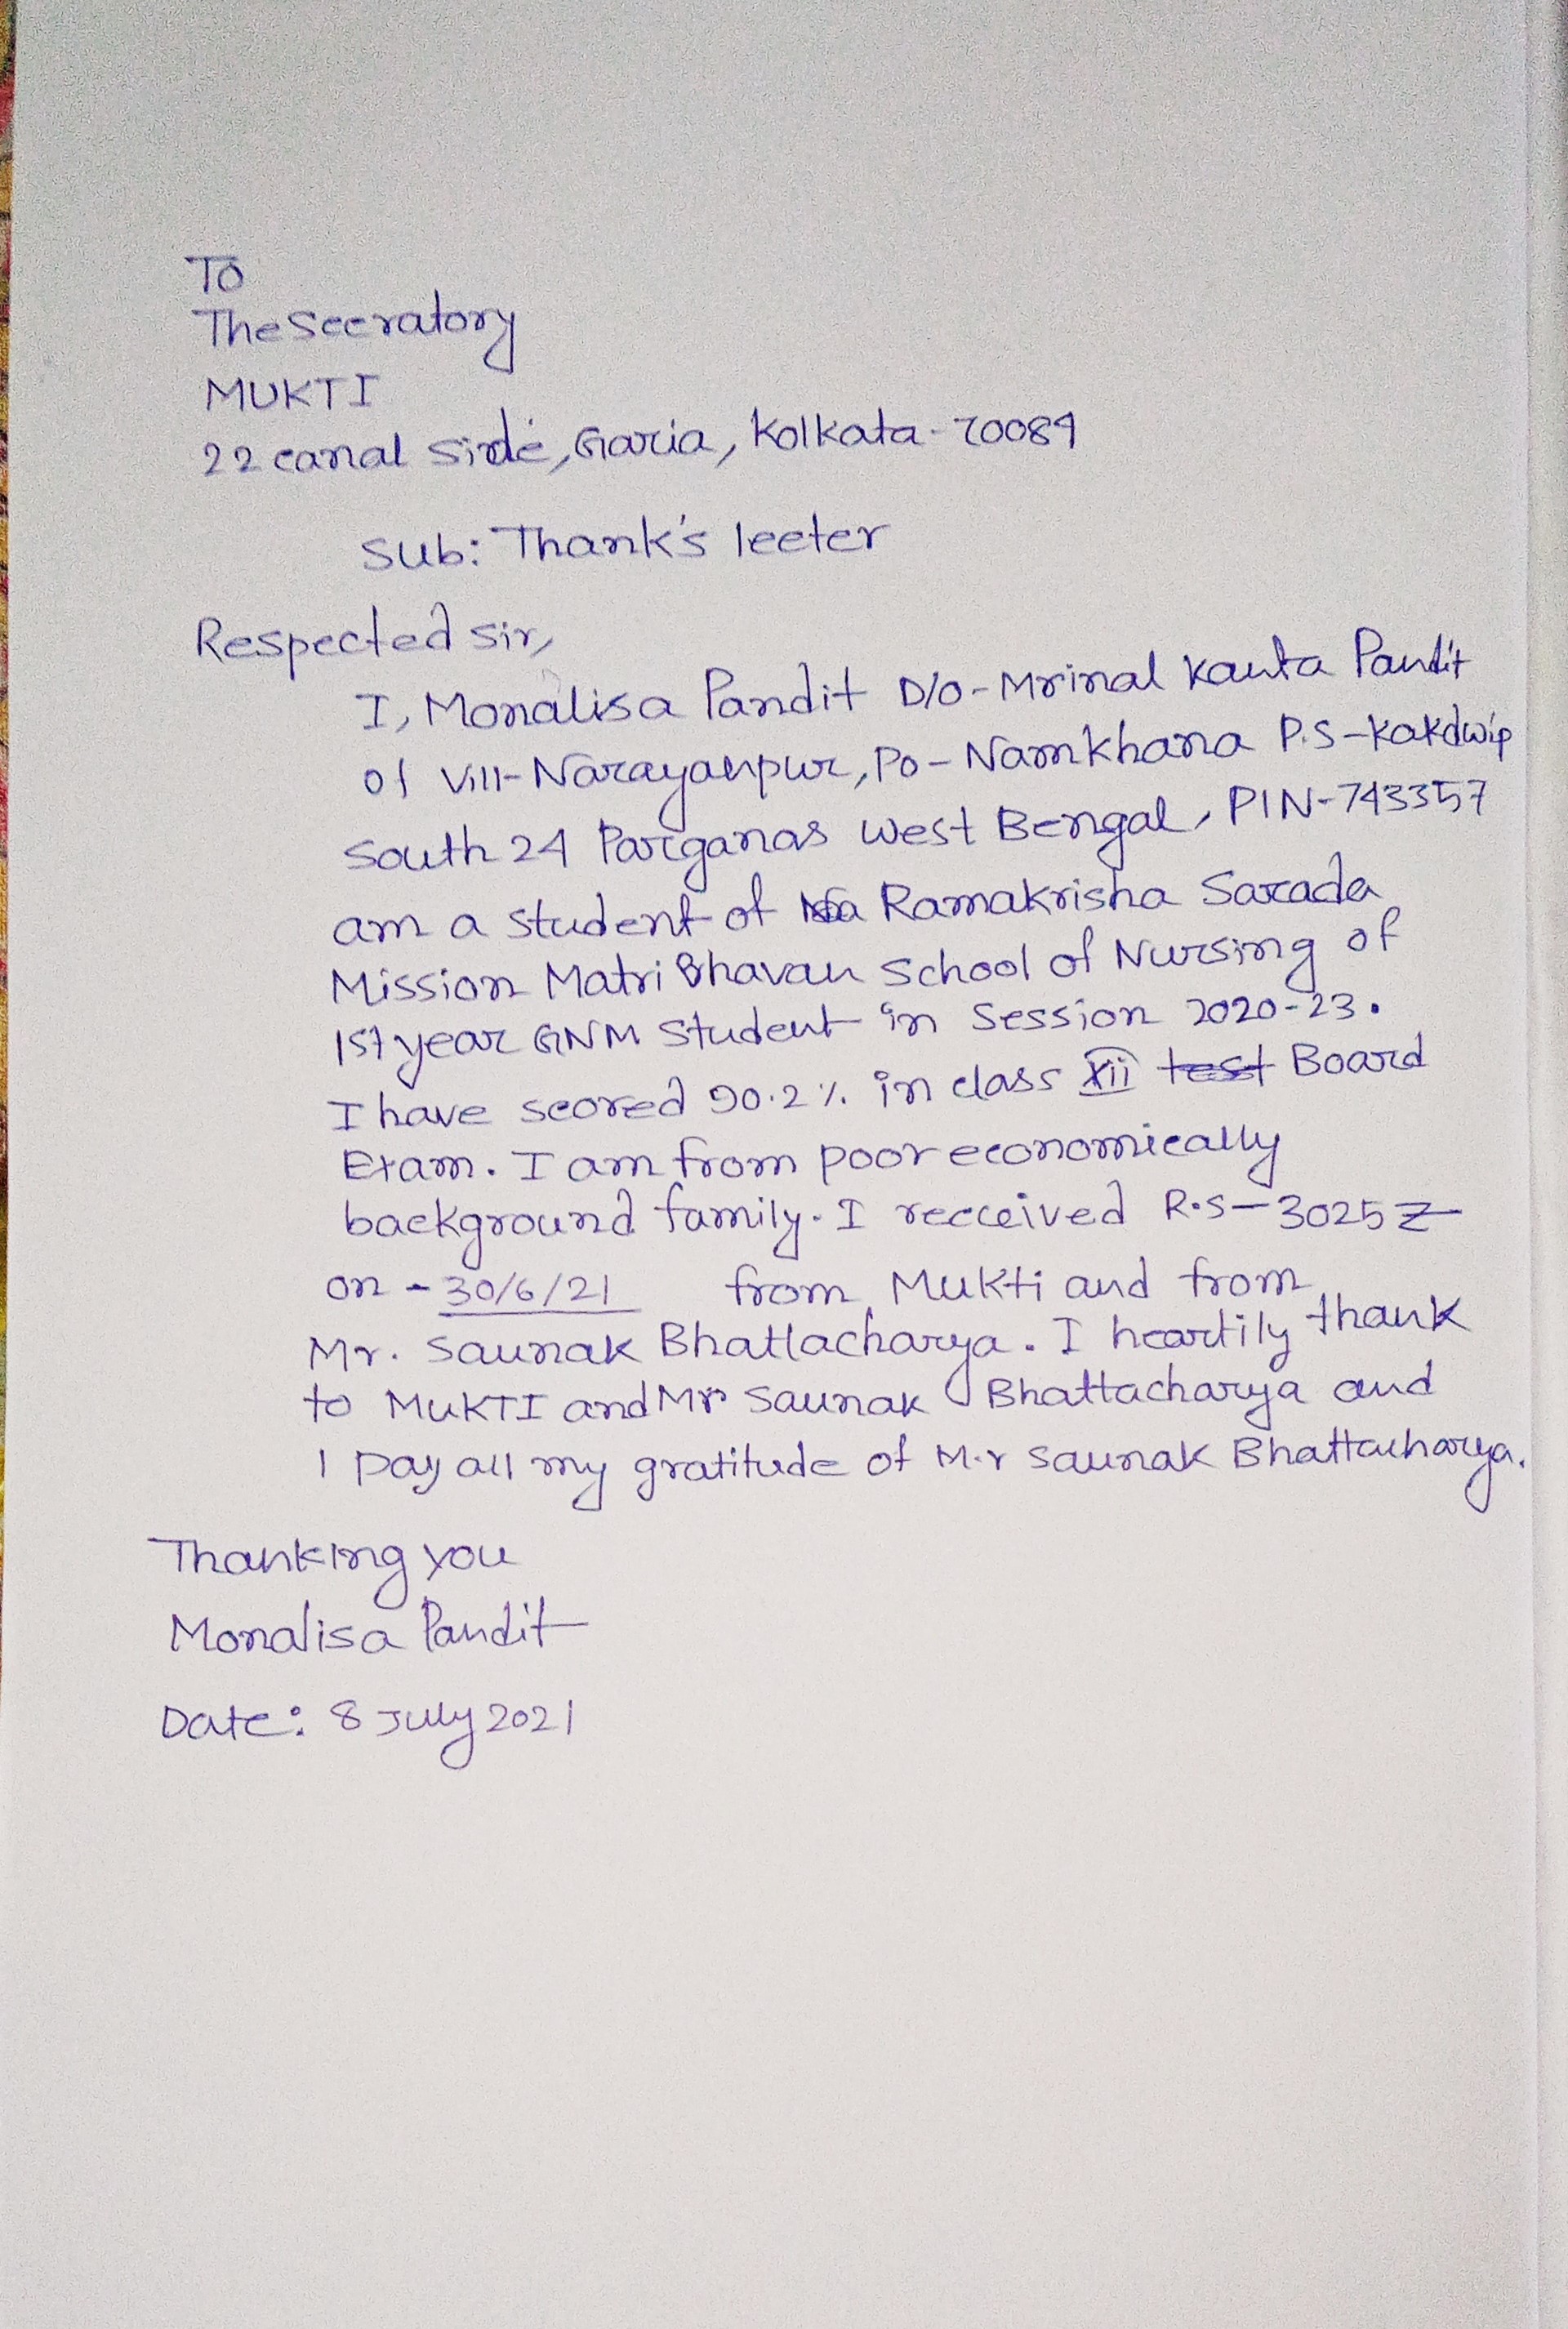 To
The Secratory
MUKTI
22 canal Side, Garia, Kolkata - 70084
Sub: Thank's leeter
Respected Sir,
I, Monalisa Pandit D/O - Mrinal Kanta Pandit
of Vill- Narayanpur, Po - Namkhana P.S - Kakdwip
South 24 Parganas West Bengal, PIN-743357
am a student of Ramakrisha Sarada
Mission Matri Bhavan School of Nursing of
1st year GNM Student in Session 2020-23.
I have scored 90.2% in class XII test Board
Exam. I am from poor economically
background family. I recceived R.S - 3025
on - 30/6/21 from Mukti and from
Mr. Saunak Bhattacharya. I heartily thank
to MUKTI and Mr Saunak Bhattacharya and
I pay all my gratitude of M.r Saunak Bhattacharya.
Thanking you
Monalisa Pandit
Date: 8 July 2021